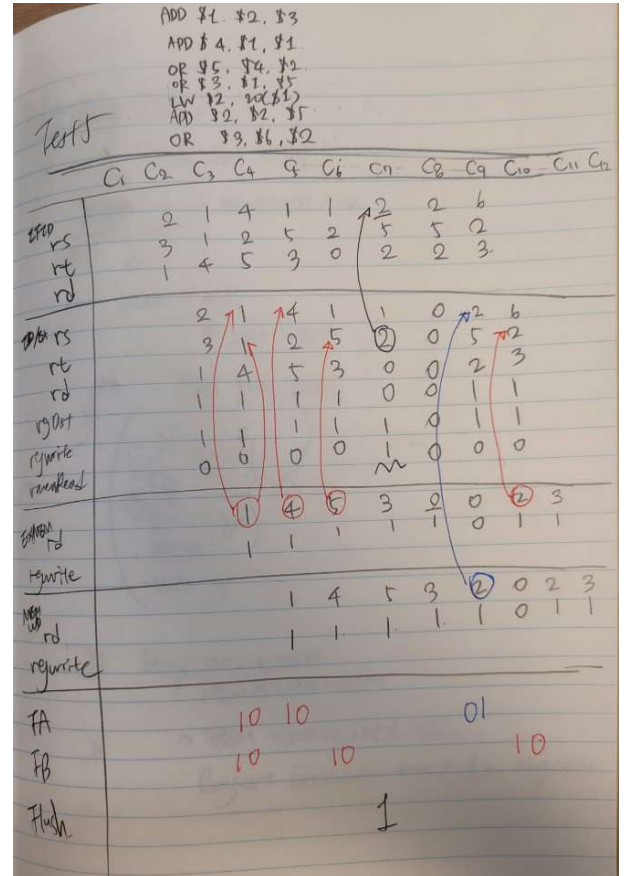 ADD $1. $2, $3
ADD $4, $1, $1
OR $5, $4, $2
OR $3, $1, $5
LW $2, 20($1)
ADD $2, $2, $5
OR $3, $6, $2
Test 5
C1 C2 C3 C4 C5 C6 C7 C8 C9 C10 C11 C12
IFID
rs 2 1 4 1 1 2 2 6
rt 3 1 2 5 2 5 5 2
rd 1 4 5 3 0 2 2 3.
ID/EX rs 2 1 4 1 1 0 2 6
rt 3 1 2 5 2 0 5 2
rd 1 4 5 3 0 0 2 3
rgDst 1 1 1 1 0 0 1 1
regwrite 1 1 1 1 1 0 1 1
memRead 0 0 0 0 0 0 0
EX/MEM
rd 1 4 5 3 2 0 2 3
regwrite 1 1 1 1 1 0 1 1
MEM
WB
rd 1 4 5 3 2 0 2 3
regwrite 1 1 1 1 1 0 1 1
FA 10 10 01
FB 10 10 10
Flush 1